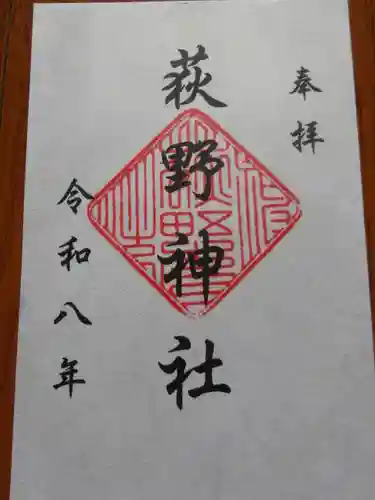 奉拝
荻野神社
令和八年